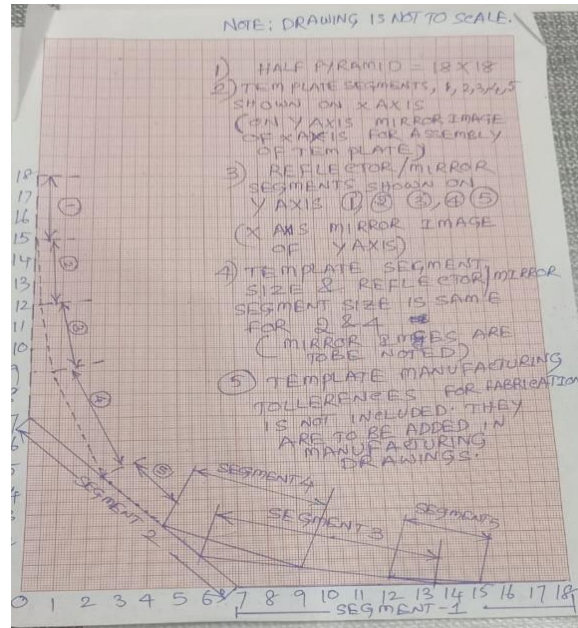 NOTE: DRAWING IS NOT TO SCALE.
1) HALF PYRAMID = 18 X 18
2) TEMPLATE SEGMENTS, 1, 2, 3, 4, 5
SHOWN ON X AXIS
(ON Y AXIS MIRROR IMAGE
OF X AXIS FOR ASSEMBLY
OF TEMPLATE)
3) REFLECTOR/MIRROR
SEGMENTS SHOWN ON
Y AXIS ① ② ③, ④ ⑤
(X AXIS MIRROR IMAGE
OF Y AXIS)
4) TEMPLATE SEGMENT
SIZE & REFLECTOR/MIRROR
SEGMENT SIZE IS SAME
FOR 2 & 4
(MIRROR IMAGES ARE
TO BE NOTED)
⑤ TEMPLATE MANUFACTURING
TOLLERENCES FOR FABRICATION
IS NOT INCLUDED. THEY
ARE TO BE ADDED IN
MANUFACTURING
DRAWINGS.
18
17
16
15
14
13
12
11
10
9
7
6
5
4
①
②
③
④
⑤
SEGMENT 2
SEGMENT 4
SEGMENT 3
SEGMENT 5
0 1 2 3 4 5 6 7 8 9 10 11 12 13 14 15 16 17 18
SEGMENT-1